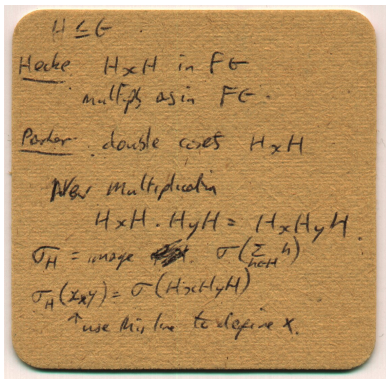 H ≤ G
Hecke HxH in FG
multiply as in FG.
Parker double cosets HxH
New multiplication
HxH . HyH = HxHyH.
σ_H = image σ(∑_{h∈H} h)
σ_H(x*y) = σ(HxHyH)
↑ use this line to define *.